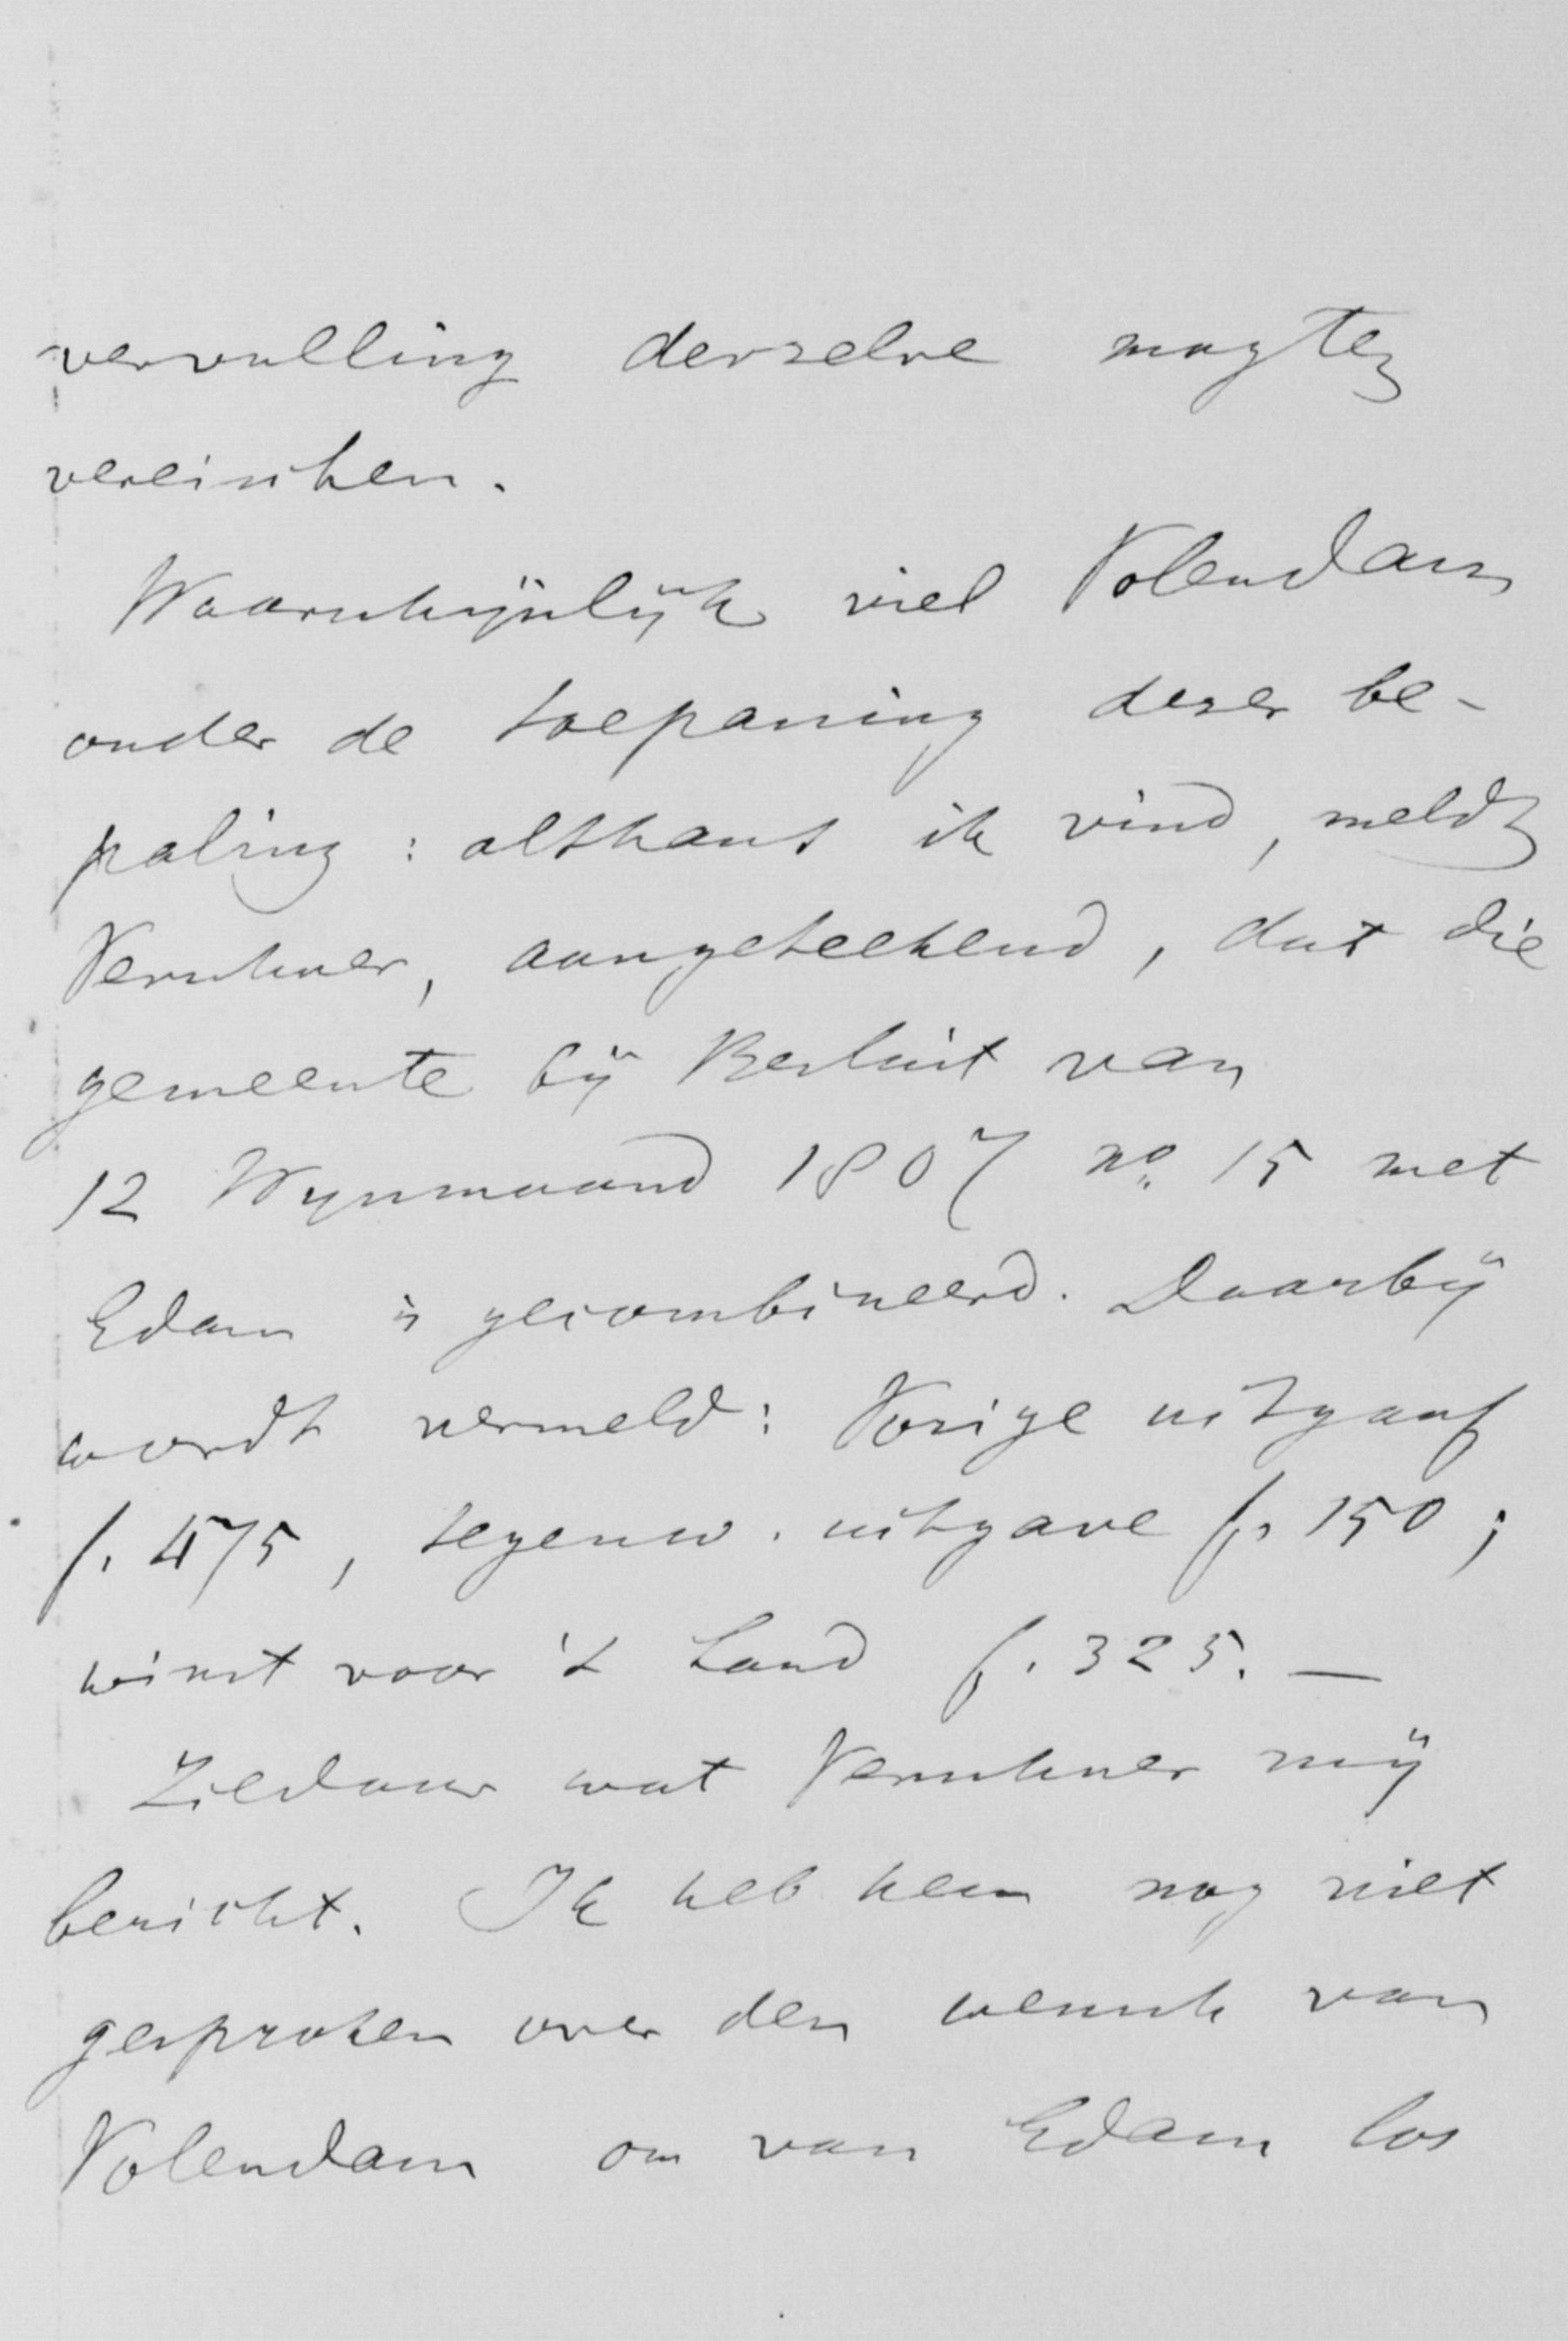 vervulling derzelve mogten
vereischen.
Waarschijnlijk viel Volendam
onder de toepassing dezer be-
paling: althans ik vind, meldt
Verschuer, aangeteekend, dat die
gemeente bij Besluit van
12 Wynmaand 1807 no. 15 met
Edam is gecombineerd. Daarbij
wordt vermeld: Vorige uitgaaf
f. 475, tegenw. uitgave f. 150;
winst voor 't Land f. 325. —
Ziedaar wat Verschuer mij
bericht. Ik heb hem nog niet
gesproken over den wensch van
Volendam om van Edam los